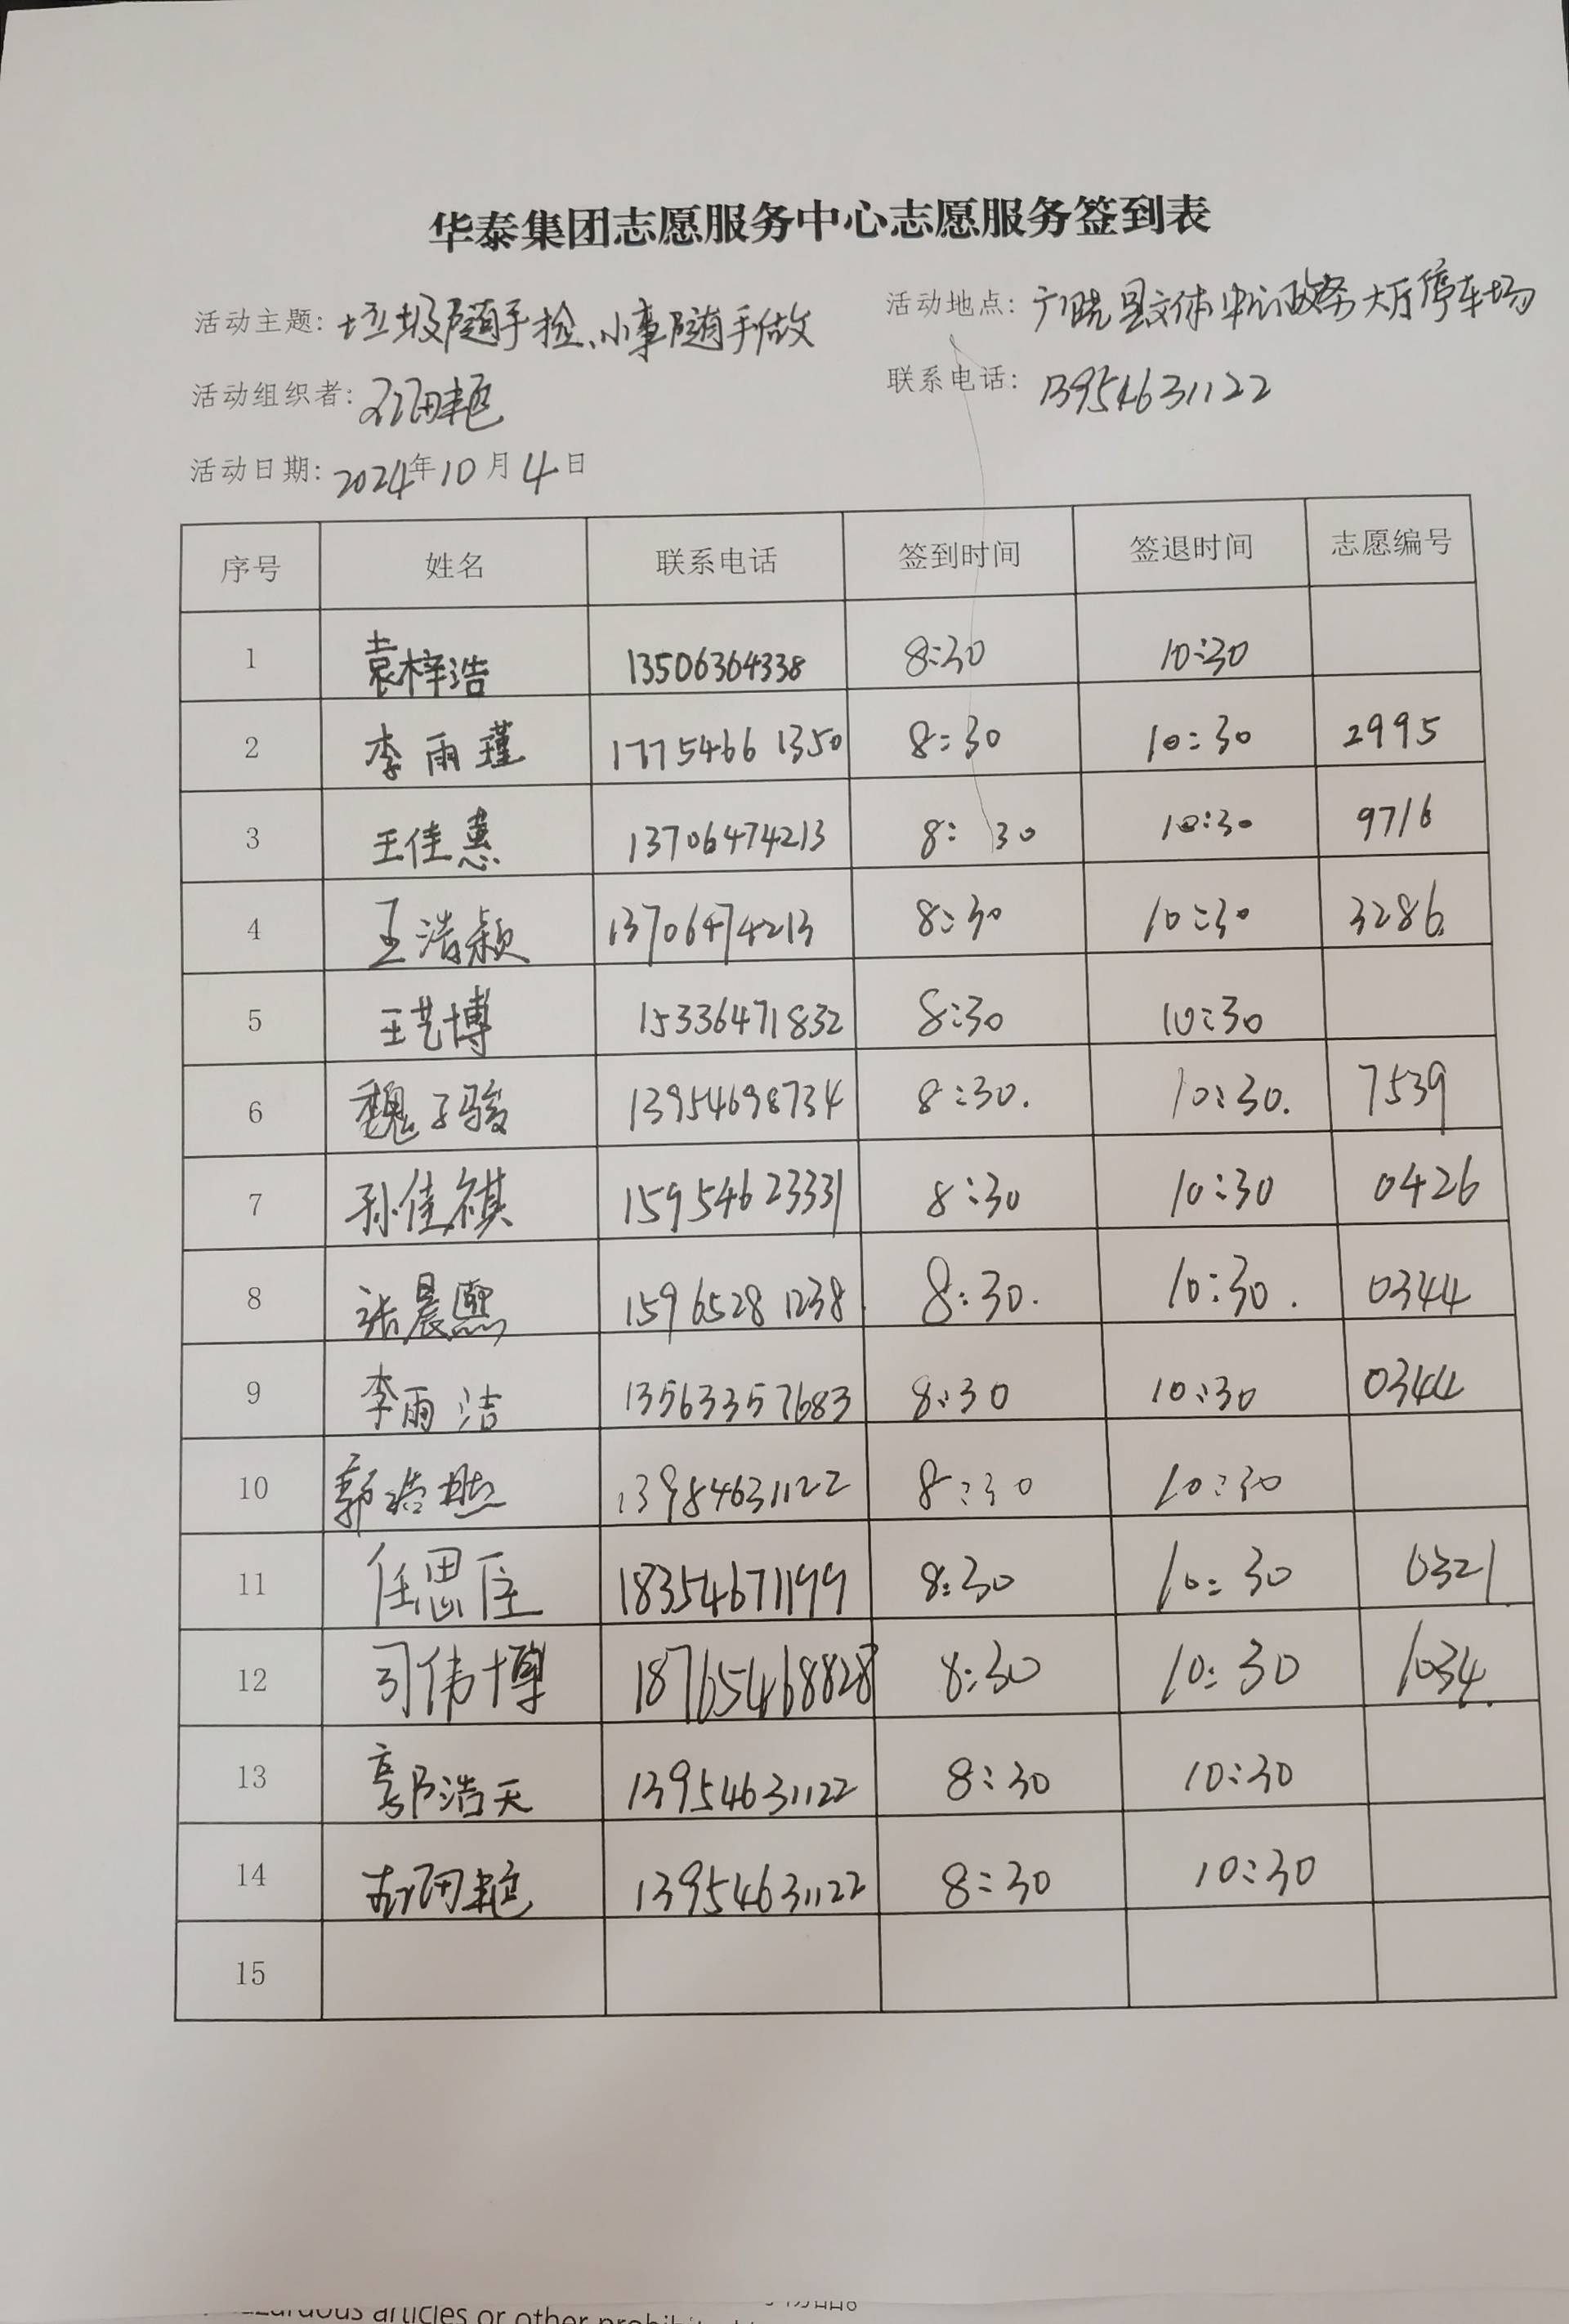 华泰集团志愿服务中心志愿服务签到表
活动主题: 垃圾随手捡、小事随手做 活动地点: 广饶县文体中心政务大厅停车场
活动组织者: 联系电话: 13954631122
活动日期: 2024年10月4日
序号 姓名 联系电话 签到时间 签退时间 志愿编号
1 袁梓浩 13506364338 8:30 10:30
2 李雨瑾 17754661350 8:30 10:30 2995
3 王佳惠 13706474213 8:30 10:30 9716
4 王浩颖 13706474213 8:30 10:30 3286
5 王艺博 15336471832 8:30 10:30
6 魏子骏 13954698734 8:30. 10:30. 7539
7 孙佳祺 15954623331 8:30 10:30 0426
8 张晨熙 15965281238 8:30. 10:30. 0344
9 李雨洁 13563357683 8:30 10:30 0344
10 郭浩 13984631122 8:30 10:30
11 任思 18354671199 8:30 10:30 0321
12 司伟博 18765468828 8:30 10:30 1034.
13 郭浩天 13954631122 8:30 10:30
14 13954631122 8:30 10:30
15
articles or other